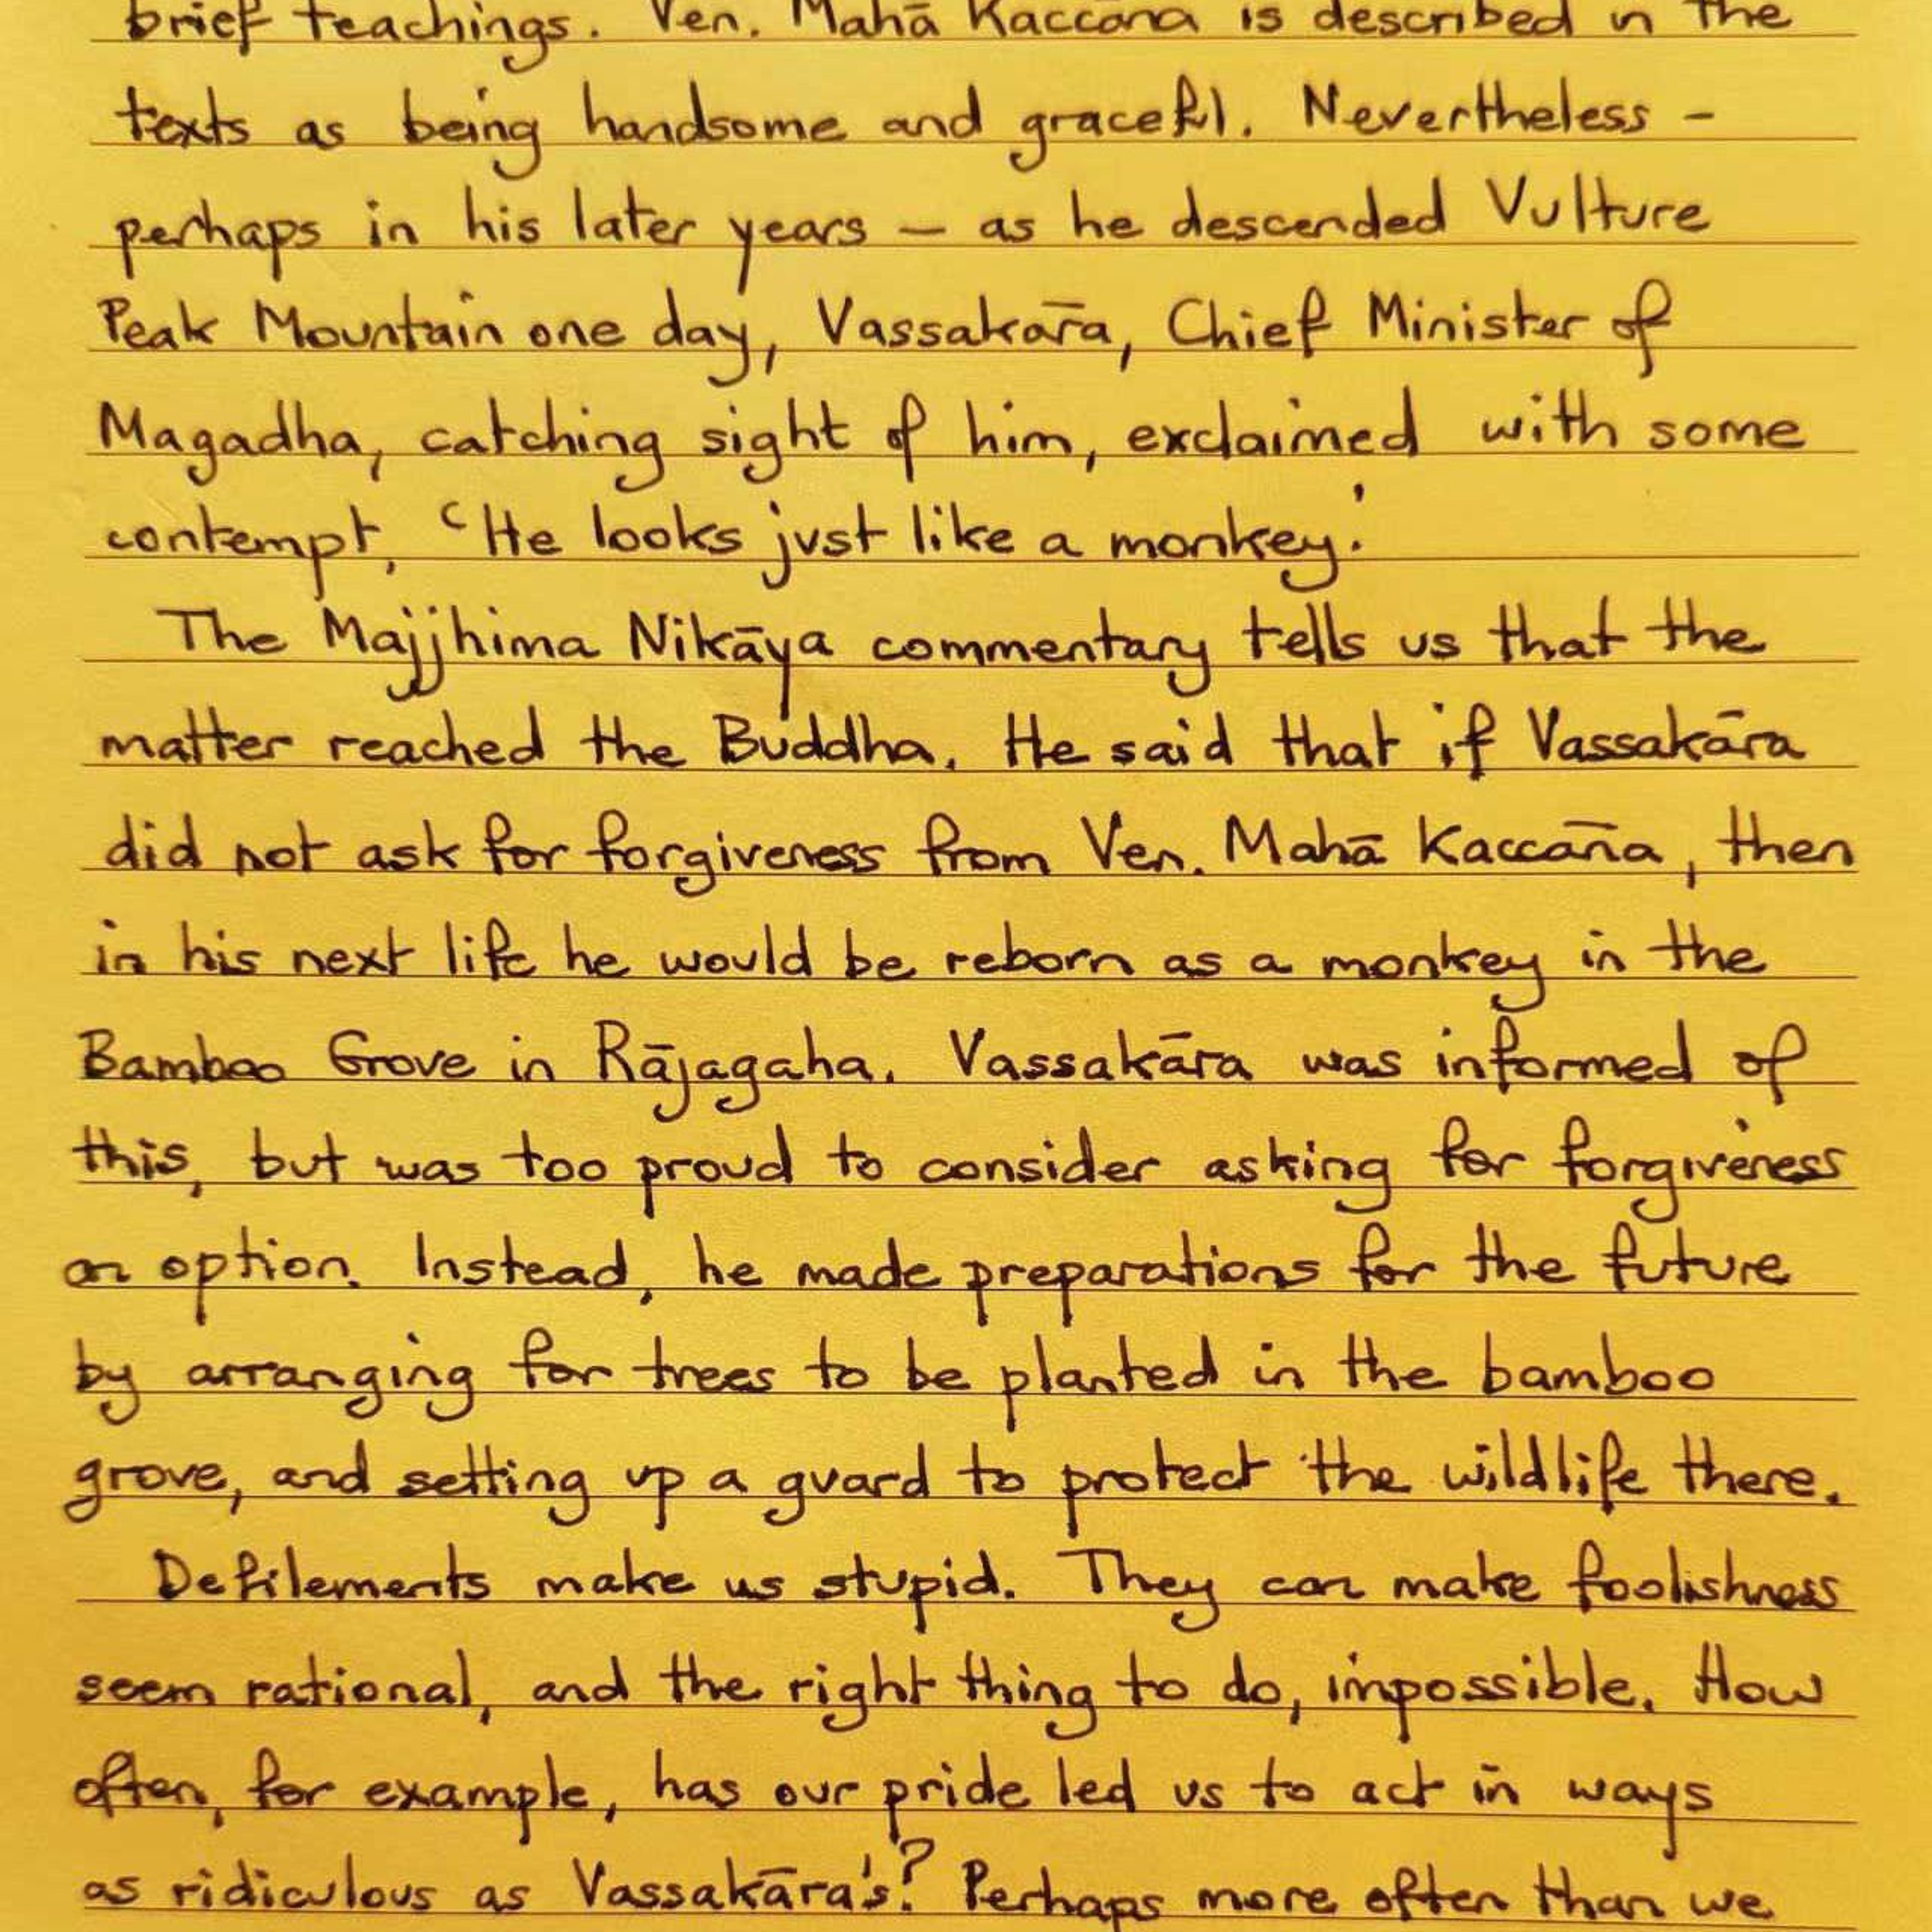 brief teachings. Ven. Mahā Kaccāna is described in the
texts as being handsome and graceful. Nevertheless –
perhaps in his later years – as he descended Vulture
Peak Mountain one day, Vassakāra, Chief Minister of
Magadha, catching sight of him, exclaimed with some
contempt, ‘He looks just like a monkey.’
The Majjhima Nikāya commentary tells us that the
matter reached the Buddha. He said that if Vassakāra
did not ask for forgiveness from Ven. Mahā Kaccāna, then
in his next life he would be reborn as a monkey in the
Bamboo Grove in Rājagaha. Vassakāra was informed of
this, but was too proud to consider asking for forgiveness
an option. Instead, he made preparations for the future
by arranging for trees to be planted in the bamboo
grove, and setting up a guard to protect the wildlife there.
Defilements make us stupid. They can make foolishness
seem rational, and the right thing to do, impossible. How
often, for example, has our pride led us to act in ways
as ridiculous as Vassakāra's? Perhaps more often than we